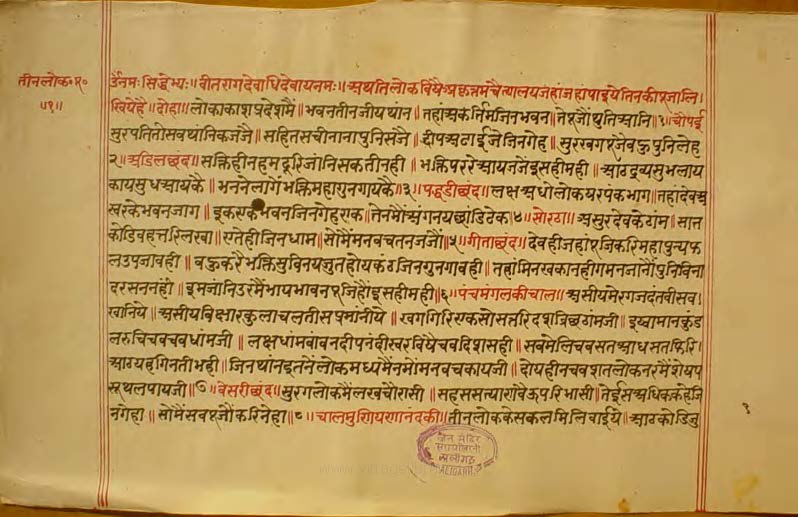 तीनलोक॰पू॰
॥१॥
उँनमः सिद्धेभ्यः॥ वीतरागदेवाधिदेवायनमः॥ अथतिलोकविषैः चैत्यालयजहांजहांपाईयेतिनकीपूजालि।
खियेहै॥ दोहा॥ लोकाकाशप्रदेशमैं॥ भवनतीनजीयथांन॥ तहांअकर्त्तमजिनभवन॥ तेपूजौंथुतिआंनि॥१॥चौपई
सुरपतितीसवथांनिकजजै॥ सहितसचीनानापुनिसजै॥ दीपअठाईजेजिनगेह॥ सुरखगपूजेवऊपुनिलेह
२॥अडिलछंद॥ सक्तिहीनहमदूरिजांनिसकतीनही॥ भक्तिपरेरेआयनजेंइसहीमही॥ आठद्रव्यसुभलाय
कायसुधआयकै॥ भननेलागेभक्तिमहागुनगायकै॥३॥पद्धडीछंद॥ लक्षअधोलोकषरपंकभाग॥ तहांदेवअ
जिनगेहएक॥ तेनमौंअगनय ४॥ सोरठा॥ असुरदेवकेठांम॥ सात
कोडिवहत्तरिलखा॥ एतेहीजिनधाम॥ सोमैंमनवचतनजजौं॥५॥गीताछंद॥ देवहीजहांपूजिकरिमहापुन्यफ
लउपजावही॥ वऊकरेभक्तिसुविनयजुतहोयकंठजिनगुनगावही॥ तहांमिनखकानहीगमनजानौंपुनिविना
दरसननंही॥ इमजांनिउरमैंभायभावनपूजिहौंइसहीमही॥६॥पंचमंगलकीचाल॥ असीयमेरगजदंतवीसव।
खांनिये॥ असीयविक्षारकुलाचलतीसपमांनीये॥ खगगिरिएकसोसतरि इष्वाकारनकुंड
लरुचिवचवचवधांमजी॥ लक्षधांमबांवनदीपनंदीस्वरविषेचवदिशसही॥ सवमेलिचवसतआधसतफिरि।
आठयवगिनतीभही॥ जिनथांनइतनेंलोकमध्यमैंनमोंमनवचकायजी॥ दोयहीनचवशतलोकनरमैंशेषप
स्रथलपायजी॥७॥वेसरीछंद॥ सुरगलोकमैंलखचौरासी॥ सहससत्याणवैऊपरिभासी॥ तेईसअधिककहेजि
नगेहा॥ सोमैंसवपूजौंकरिनेहा॥८॥चालमुणियणानंदकी॥ तीनलोककेसकलमिलिवाईये॥ आठकोडिजु
१
जैन मंदिर
अलीगढ़
ALIGARH